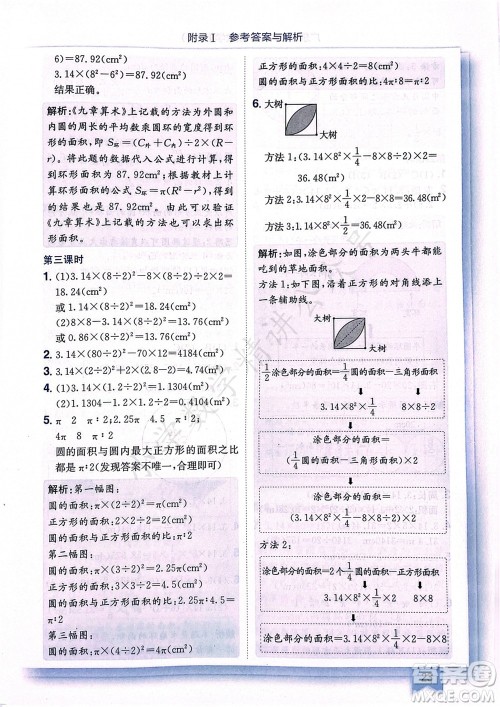 附录Ⅰ 参考答案与解析
6)=87.92(cm²)
3.14×(8²-6²)=87.92(cm²)
结果正确。
解析:《九章算术》上记载的方法为外圆和
内圆的周长的平均数乘圆环的宽度得到环
形的面积,即 S环=(C外+C内)÷2×(R-
r)。将此题的数据代入公式进行计算,得
到环形面积为 87.92cm²;根据教材上计
算环形面积的方法 S环=π(R²-r²),求得
环形面积为 87.92cm²。由此可以验证
《九章算术》上记载的方法可以求出圆环
形面积。
第三课时
1. (1)3.14×(8÷2)²-8×(8÷2)÷2×2=
18.24(cm²)
或 1.14×(8÷2)²=18.24(cm²)
(2)8×8-3.14×(8÷2)²=13.76(cm²)
或 0.86×(8÷2)²=13.76(cm²)
2. 3.14×(80÷2)²-40×21=4184(cm²)
3. 3.14×(2.8÷2)²+2×(2.8÷2)=
4. (1)3.14×(1.2÷2)²=1.1304(m²)
(2)1.1304-1.2×(1.2÷2)=0.4104(m²)
5. π 2 π∶2 2.25π 4.5 π∶2
4π 8 π∶2
圆的面积与圆内最大正方形的面积之比
都是 π∶2(发现答案不唯一,合理即可)
解析:第一幅图:
圆的面积:π×(2÷2)²=π(cm²)
正方形的面积:2×1÷2×2=2(cm²)
圆的面积与正方形的面积的比:π∶2
第二幅图:
圆的面积:π×(3÷2)²=2.25π(cm²)
正方形的面积:3×1.5÷2×2=4.5(cm²)
圆的面积与正方形的面积的比:2.25π∶
4.5=π∶2
第三幅图:
圆的面积:π×(4÷2)²=4π(cm²)
正方形的面积:4×2÷2×2=8(cm²)
圆的面积与正方形的面积的比:4π∶8=π∶2
6.
大树
大树
方法 1:(3.14×8²×1/4-8×8÷2)×2=
36.48(m²)
方法 2:3.14×8²×1/4×2-8×8=36.48(m²)
解析:如图,涂色部分的面积为两头牛都能
吃到的草地面积。
方法 1:如下图,沿着正方形的对角线添上
一条辅助线。
大树
大树
1/2涂色部分的面积=1/4圆的面积-三角形面积
3.14×8²×1/4 8×8÷2
涂色部分的面积=
(1/4圆的面积-三角形面积)×2
涂色部分的面积=(3.14×8²×1/4-8×8÷2)×2
方法 2:
涂色部分的面积=2个1/4圆的面积-正方形面积
3.14×8²×1/4×2 8×8
涂色部分的面积=3.14×8²×1/4×2-8×8
答案圈
MXQE.COM